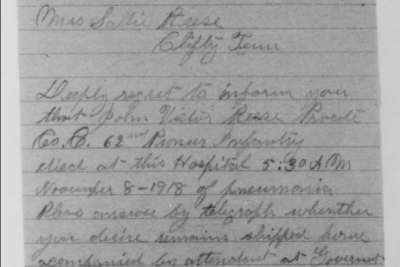 Mrs Sallie Reese
Clifty Tenn
Deeply regret to inform you
that John Victor Reese Private
Co. C. 62nd Pioneer Infantry
died at this Hospital 5:30 AM
November 8-1918 of pneumonia
Pleas answer by telegraph whether
you desire remains shipped home
acompanied by attendant at Governmt